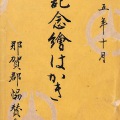 五年十月
記念繪はかき
那賀郡協賛